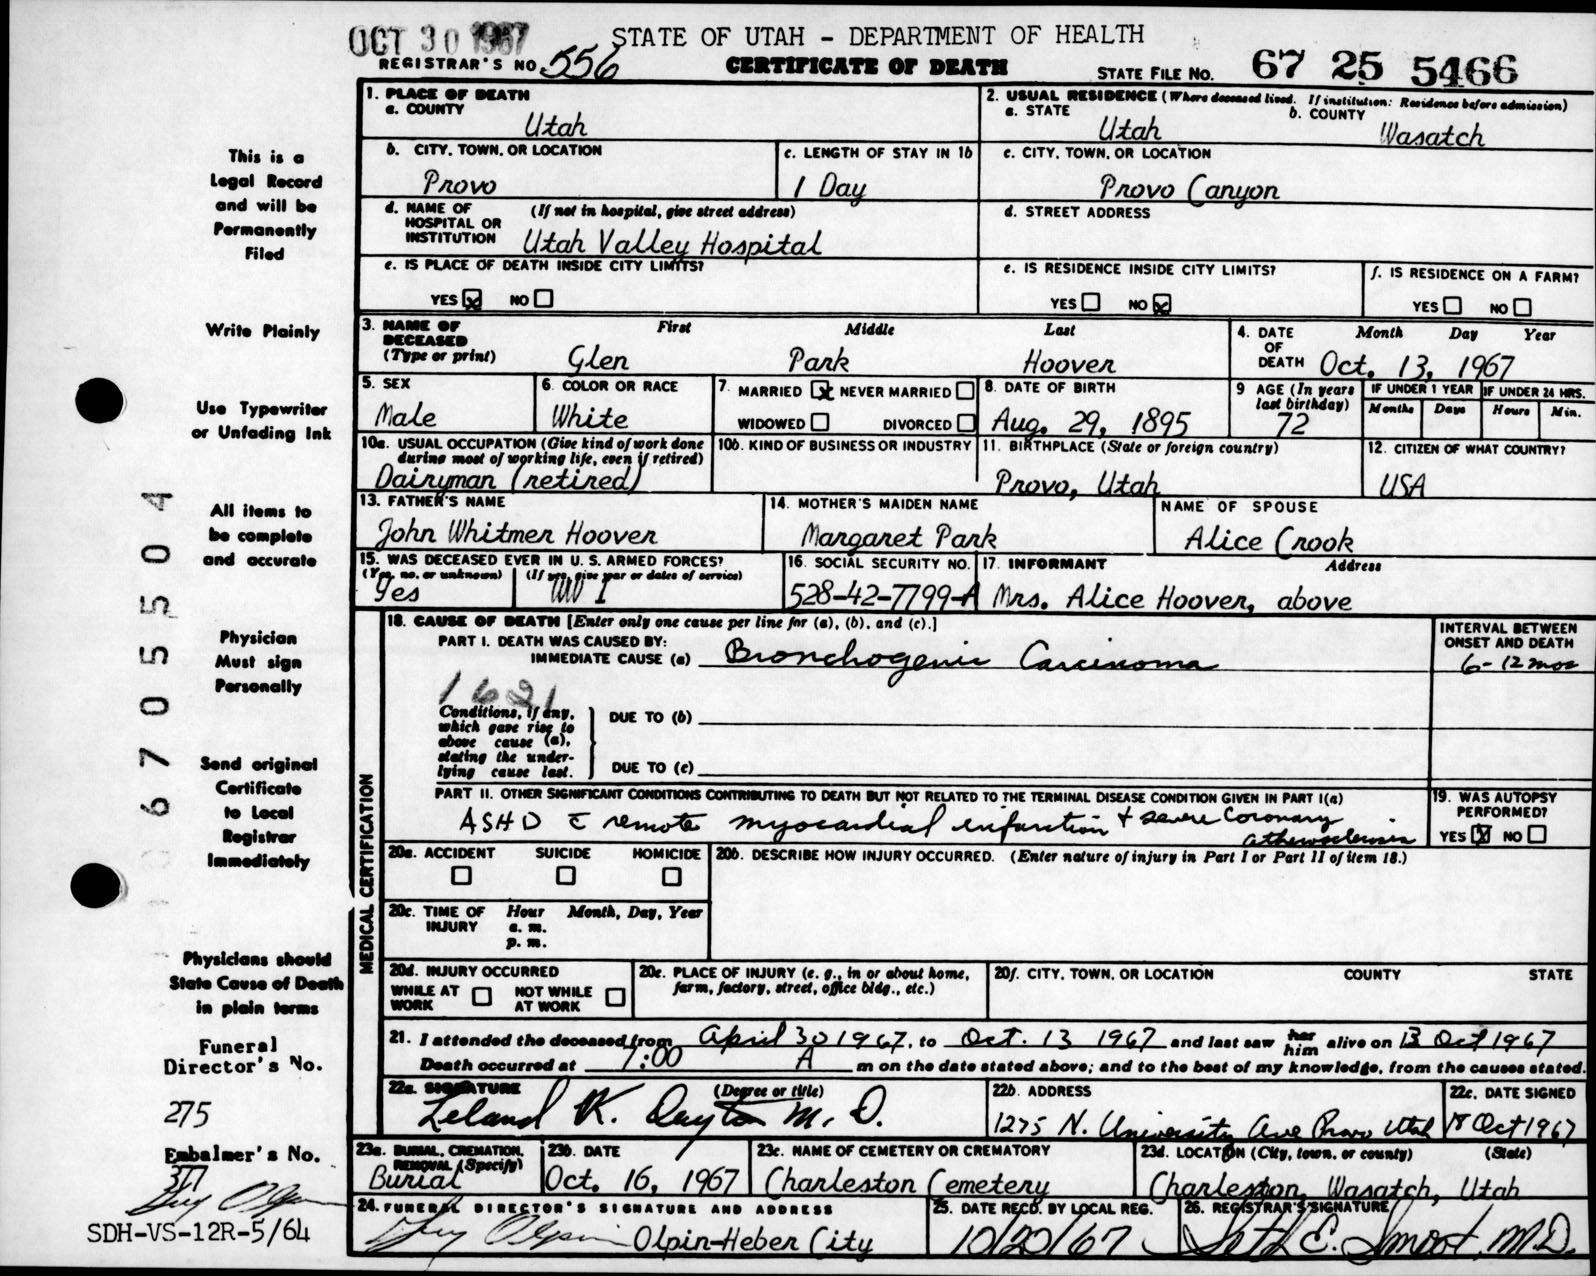 OCT 30 1967
STATE OF UTAH - DEPARTMENT OF HEALTH
REGISTRAR'S NO. 556
CERTIFICATE OF DEATH
STATE FILE NO. 67 25 5466
This is a
Legal Record
and will be
Permanently
Filed
Write Plainly
Use Typewriter
or Unfading Ink
All items to
be complete
and accurate
Physician
Must sign
Personally
Send original
Certificate
to Local
Registrar
Immediately
Physicians should
State Cause of Death
in plain terms
Funeral
Director's No.
275
Embalmer's No.
377
SDH-VS-12R-5/64
6705504
1. PLACE OF DEATH
a. COUNTY
Utah
2. USUAL RESIDENCE (Where deceased lived. If institution: Residence before admission)
a. STATE
Utah
b. COUNTY
Wasatch
b. CITY, TOWN, OR LOCATION
Provo
c. LENGTH OF STAY IN 1b
1 Day
c. CITY, TOWN, OR LOCATION
Provo Canyon
d. NAME OF HOSPITAL OR INSTITUTION (If not in hospital, give street address)
Utah Valley Hospital
d. STREET ADDRESS
e. IS PLACE OF DEATH INSIDE CITY LIMITS?
YES [x] NO [ ]
e. IS RESIDENCE INSIDE CITY LIMITS?
YES [ ] NO [x]
f. IS RESIDENCE ON A FARM?
YES [ ] NO [ ]
3. NAME OF DECEASED (Type or print)
First Middle Last
Glen Park Hoover
4. DATE OF DEATH Month Day Year
Oct. 13, 1967
5. SEX
Male
6. COLOR OR RACE
White
7. MARRIED [x] NEVER MARRIED [ ]
WIDOWED [ ] DIVORCED [ ]
8. DATE OF BIRTH
Aug. 29, 1895
9 AGE (In years last birthday)
72
IF UNDER 1 YEAR
Months Days
IF UNDER 24 HRS.
Hours Min.
10a. USUAL OCCUPATION (Give kind of work done during most of working life, even if retired)
Dairyman (retired)
10b. KIND OF BUSINESS OR INDUSTRY
11. BIRTHPLACE (State or foreign country)
Provo, Utah
12. CITIZEN OF WHAT COUNTRY?
USA
13. FATHER'S NAME
John Whitmer Hoover
14. MOTHER'S MAIDEN NAME
Margaret Park
NAME OF SPOUSE
Alice Crook
15. WAS DECEASED EVER IN U. S. ARMED FORCES?
(Yes, no, or unknown) (If yes, give war or dates of service)
Yes WW I
16. SOCIAL SECURITY NO.
528-42-7799-A
17. INFORMANT Address
Mrs. Alice Hoover, above
MEDICAL CERTIFICATION
18. CAUSE OF DEATH [Enter only one cause per line for (a), (b), and (c).]
PART I. DEATH WAS CAUSED BY:
IMMEDIATE CAUSE (a) Bronchogenic Carcinoma
INTERVAL BETWEEN ONSET AND DEATH
6-12 mos
1621
Conditions, if any, which gave rise to above cause (a), stating the underlying cause last.
DUE TO (b)
DUE TO (c)
PART II. OTHER SIGNIFICANT CONDITIONS CONTRIBUTING TO DEATH BUT NOT RELATED TO THE TERMINAL DISEASE CONDITION GIVEN IN PART I(a)
ASHD c̄ remote myocardial infarction + severe Coronary
atherosclerosis
19. WAS AUTOPSY PERFORMED?
YES [x] NO [ ]
20a. ACCIDENT SUICIDE HOMICIDE
20b. DESCRIBE HOW INJURY OCCURRED. (Enter nature of injury in Part I or Part II of item 18.)
20c. TIME OF INJURY Hour Month, Day, Year
a. m.
p. m.
20d. INJURY OCCURRED
WHILE AT WORK [ ] NOT WHILE AT WORK [ ]
20e. PLACE OF INJURY (e. g., in or about home, farm, factory, street, office bldg., etc.)
20f. CITY, TOWN, OR LOCATION COUNTY STATE
21. I attended the deceased from April 30 1967, to Oct. 13 1967 and last saw her him alive on 13 Oct 1967
Death occurred at 7:00 A m on the date stated above; and to the best of my knowledge, from the causes stated.
22a. SIGNATURE (Degree or title)
Leland K. Dayton M. D.
22b. ADDRESS
1275 N. University Ave Provo Utah
22c. DATE SIGNED
18 Oct 1967
23a. BURIAL, CREMATION, REMOVAL (Specify)
Burial
23b. DATE
Oct. 16, 1967
23c. NAME OF CEMETERY OR CREMATORY
Charleston Cemetery
23d. LOCATION (City, town, or county) (State)
Charleston, Wasatch, Utah
24. FUNERAL DIRECTOR'S SIGNATURE AND ADDRESS
Olpin-Heber City
25. DATE RECD. BY LOCAL REG.
10/20/67
26. REGISTRAR'S SIGNATURE
Seth E. Smoot, M.D.